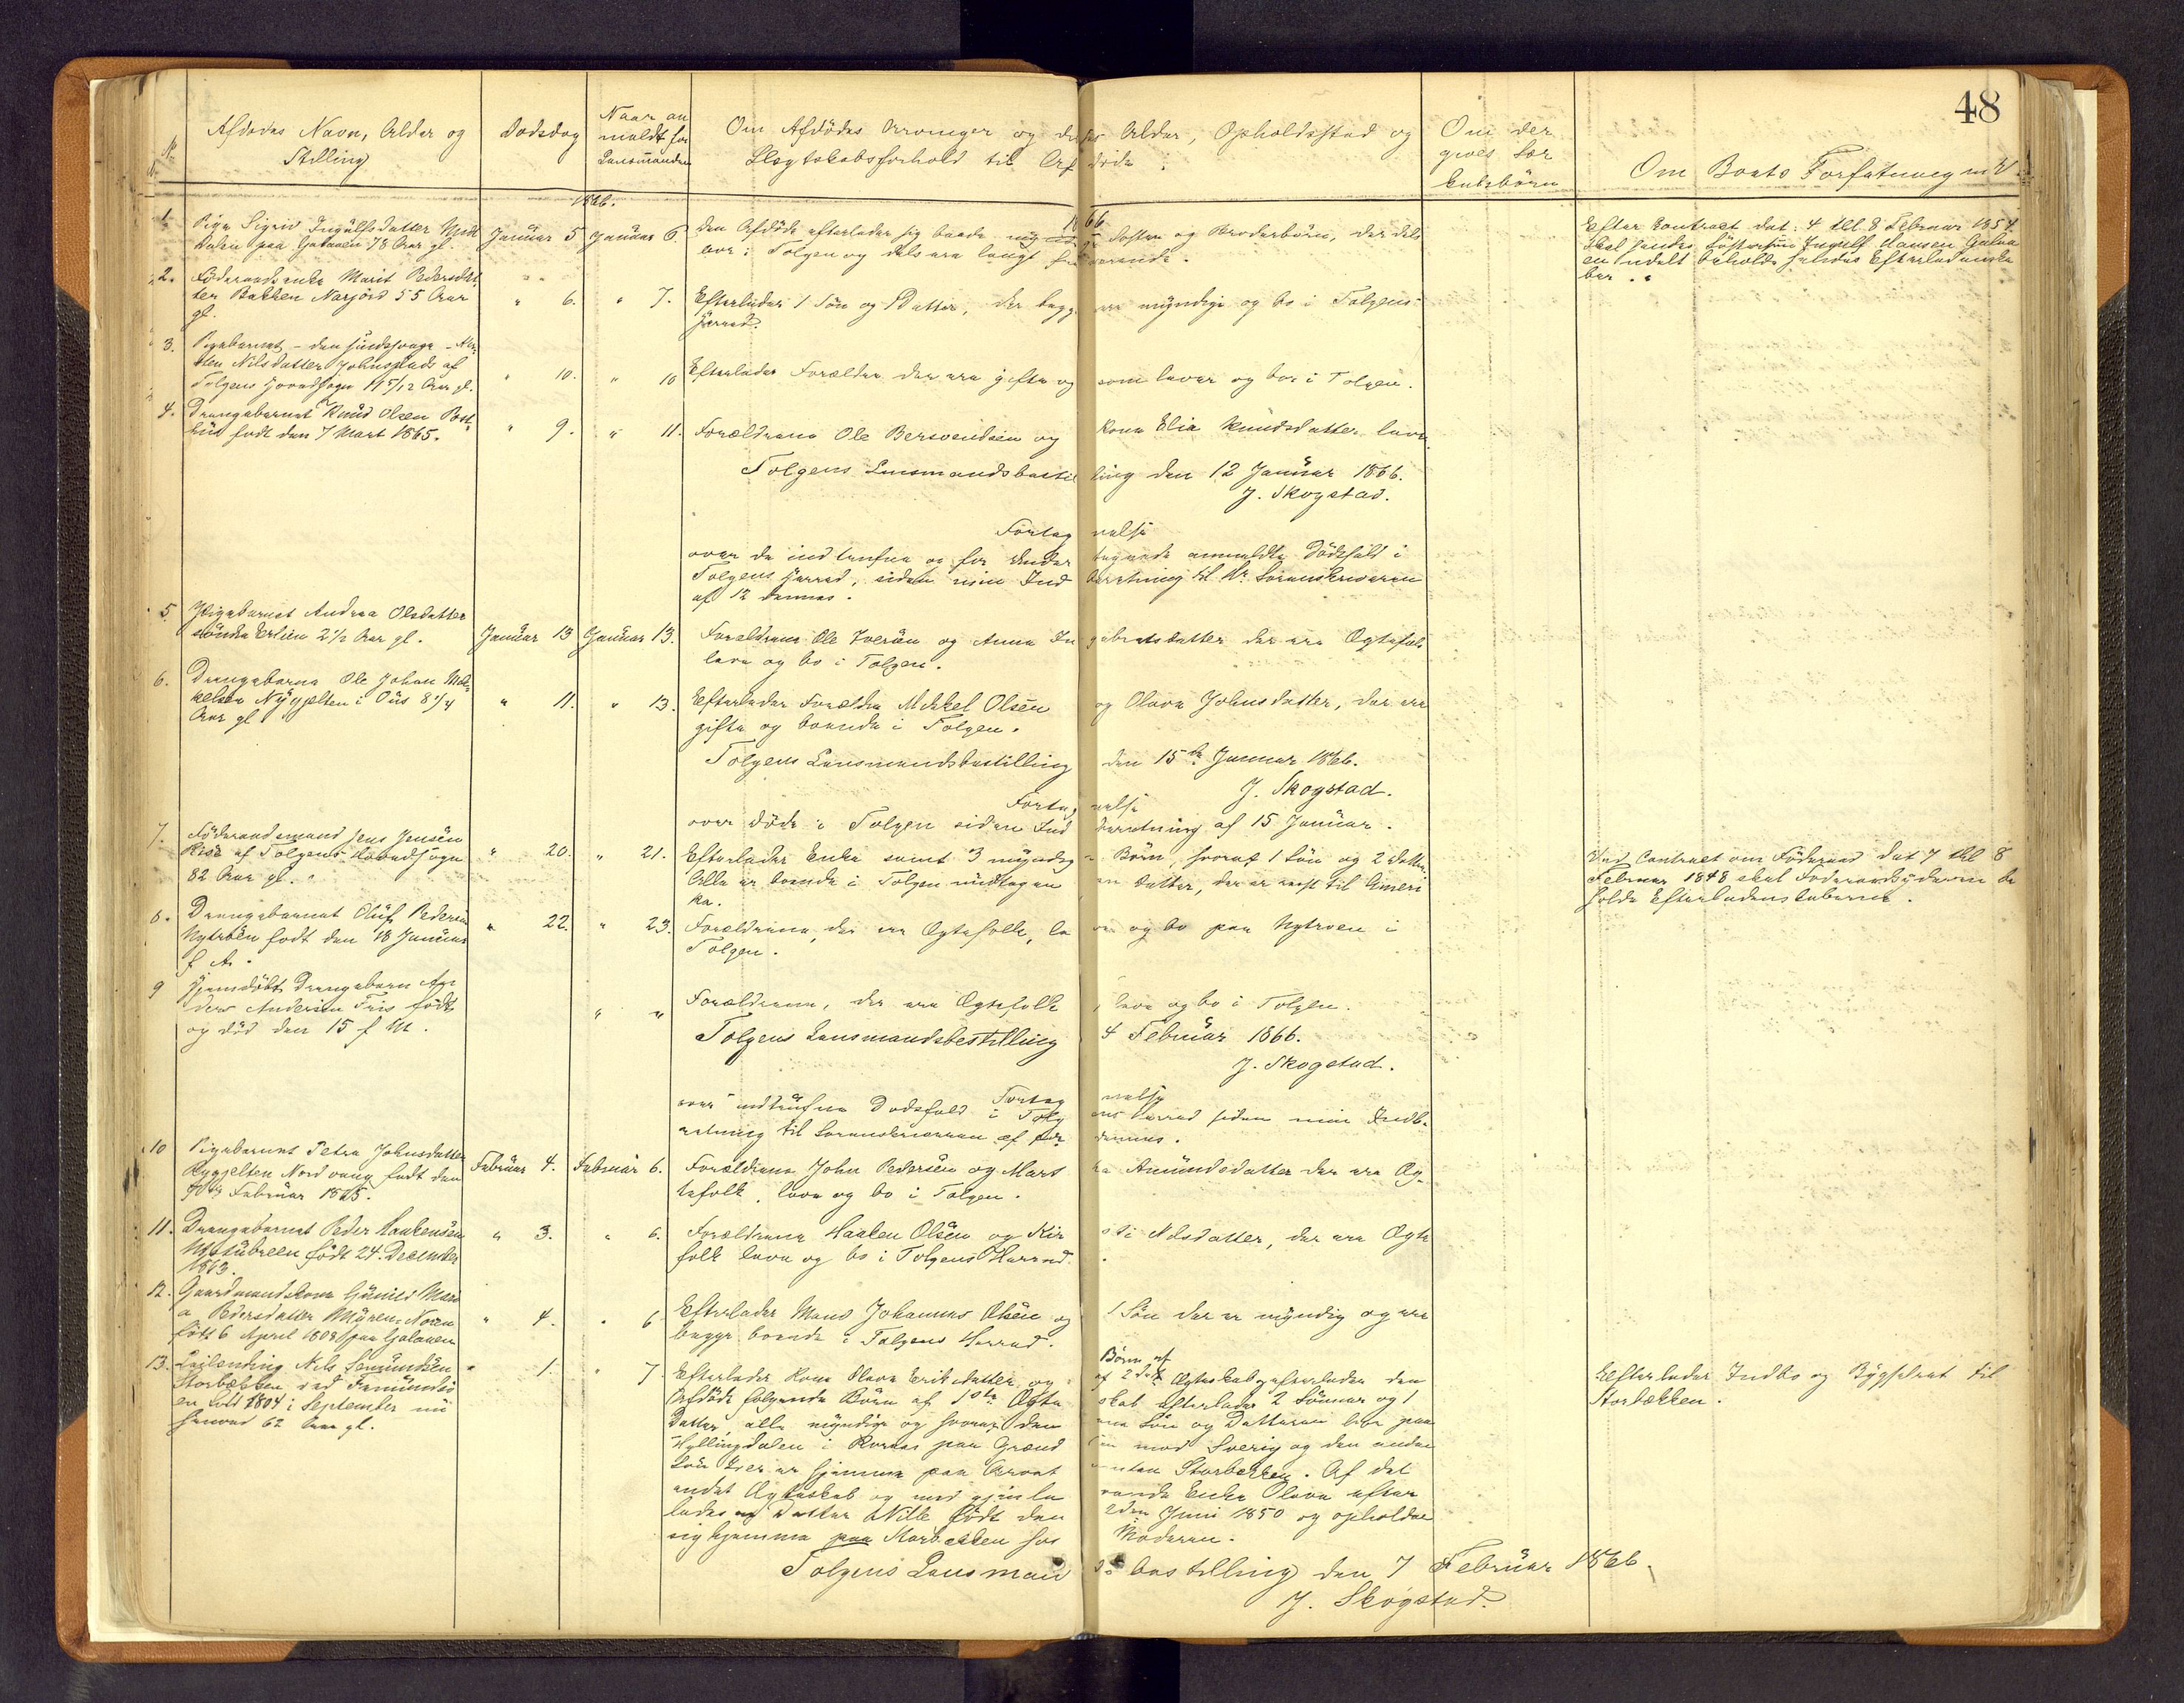 48
No
Afdødes Navn, Alder og
Stilling
Dødsdag
Naar an
meldt for
Lensmanden
Om Afdødes Arvinger og deres Alder, Opholdssted og
Slægtskabsforhold til Afdøde.
Om der
gives Sær
kulsbörn
Om Boets Forfatning m.V.
1866.
1866
1. Pige Sigrid Ingulfsdatter
paa Galaaen 78 Aar gl.
Januar 5
Januar 6.
Den Afdøde efterlader sig baade Søster og Broderbörn, der dels
bor i Tolgen og dels ere langt fraværende.
Efter Contract dat: 4 thl 8 Februar 1854
skal hendes Søstersøn Ingulf Hansen Galaa
en udelt beholde hendes Efterladenska
ber.
2. Føderaadsenke Marit Pedersdat
ter Bakken Narjord 55 Aar
gl.
" 6.
" 7.
Efterlader 1 Søn og 1 Datter, der begge ere myndige og bo i Tolgens
Herred.
3. Pigebarnet - den sindssvage -
Nilsdatter Johnsplads af
Tolgens Hovedsogn 11 5/12 Aar gl.
" 10.
" 10
Efterlader Forældre der ere gifte og som lever og bor i Tolgen.
4. Drengebarnet Knud Olsen
født den 7 Mart 1865.
" 9.
" 11.
Forældrene Ole Bersvendsen og Kone Elie Knudsdatter leve
Tolgens Lensmandsbestilling den 12 Januar 1866.
J. Skogstad.
Fortegnelse
over de indtrufne og for Undertegnede anmeldte Dødsfald i
Tolgens Herred, siden min Indberetning til Hr Sorenskriveren
af 12 dennes.
5. Pigebarnet Andrea Olsdatter
Erlien 2 1/2 Aar gl.
Januar 13
Januar 13.
Forældrene Ole Iversen og Anne Ingebretsdatter der ere Ægtefolk
leve og bo i Tolgen.
6. Drengebarne Ole Johan Mik
kelsen Nygjelten i Øus 8 1/4
Aar gl
" 11.
" 13.
Efterlader Forældre Mikkel Olsen og Olava Johnsdatter, der ere
gifte og boende i Tolgen.
Tolgens Lensmandsbestilling den 15de Januar 1866.
J. Skogstad.
Fortegnelse
over døde i Tolgen siden Indberetning af 15 Januar.
7. Føderaadsmand Jens Jensen
Riise af Tolgens Hovedsogn
82 Aar gl.
" 20.
" 21.
Efterlader Enke samt 3 myndige Børn, hvoraf 1 Søn og 2 Døttre
Alle er boende i Tolgen undtagen en Datter, der er reist til Ameri
ka.
Ved Contract om Föderaad dat 7 thl 8
Februar 1848 skal Föderaadsyderen be
holde Efterladenskaberne.
8. Drengebarnet Oluf Pedersen
Nytrøen født den 18 Januar
f A.
" 22.
" 23.
Forældrene, der ere Ægtefolk, leve og bo paa Nytroen i
Tolgen.
9 Hjemdøbt Drengebarn An
ders Andersen født
og død den 15 f M.
" "
Forældrene, der ere Ægtefolk, leve og bo i Tolgen.
Tolgens Lensmandsbestilling 4 Februar 1866.
J. Skogstad.
Fortegnelse
over indtrufne Dødsfald i Tolgens Herred siden min Indbe
retning til Sorenskriveren af dennes.
10 Pigebarnet Petra Johnsdatter
Rygjelten Nordvang født den
Februar 1865.
Februar 4.
Februar 6.
Forældrene John Pedersen og Marthe Amundsdatter der ere Æg
tefolk, leve og bo i Tolgen.
11. Drengebarnet Peder Haakensen
født 24. December
1863.
" 3.
" 6.
Forældrene Haaken Olsen og Kirsti Nilsdatter, der ere Ægte
folk leve og bo i Tolgens Herred.
12. Gaardmandskone Gunild Mari
a Pedersdatter Myren
født 6 April 1808 paa Galaaen
" 4.
" 6
Efterlader Mand Johannes Olsen og 1 Søn der er myndig og ere
begge boende i Tolgens Herred.
13. Leilending Nils Semundsen
Storbækken ved Femundsö
en født 1804 i September nu
henved 62 Aar gl.
" 1.
" 7
Efterlader Kone Olava Eriksdatter og Børn af
af 2det Ægteskab efterlader den
Afdøde følgende Børn af 1ste Ægteskab efterlader 2 Sønner og 1
Datter, alle myndige og hvoraf den ene Søn og Datteren bor paa
Hyllingdalen i Røraas paa Grændsen mod Sverig og den anden
Søn Iver er hjemme paa Storbekken. Af det
andet Ægteskab og med Enke Olava efter
lades en Datter Nille født den 2den Juni 1850 og opholder
sig hjemme paa Storbekken hos Moderen.
Efterlader Indbo og Bygselret til
Storbækken.
Tolgens Lensmandsbestilling den 7 Februar 1866.
J. Skogstad.